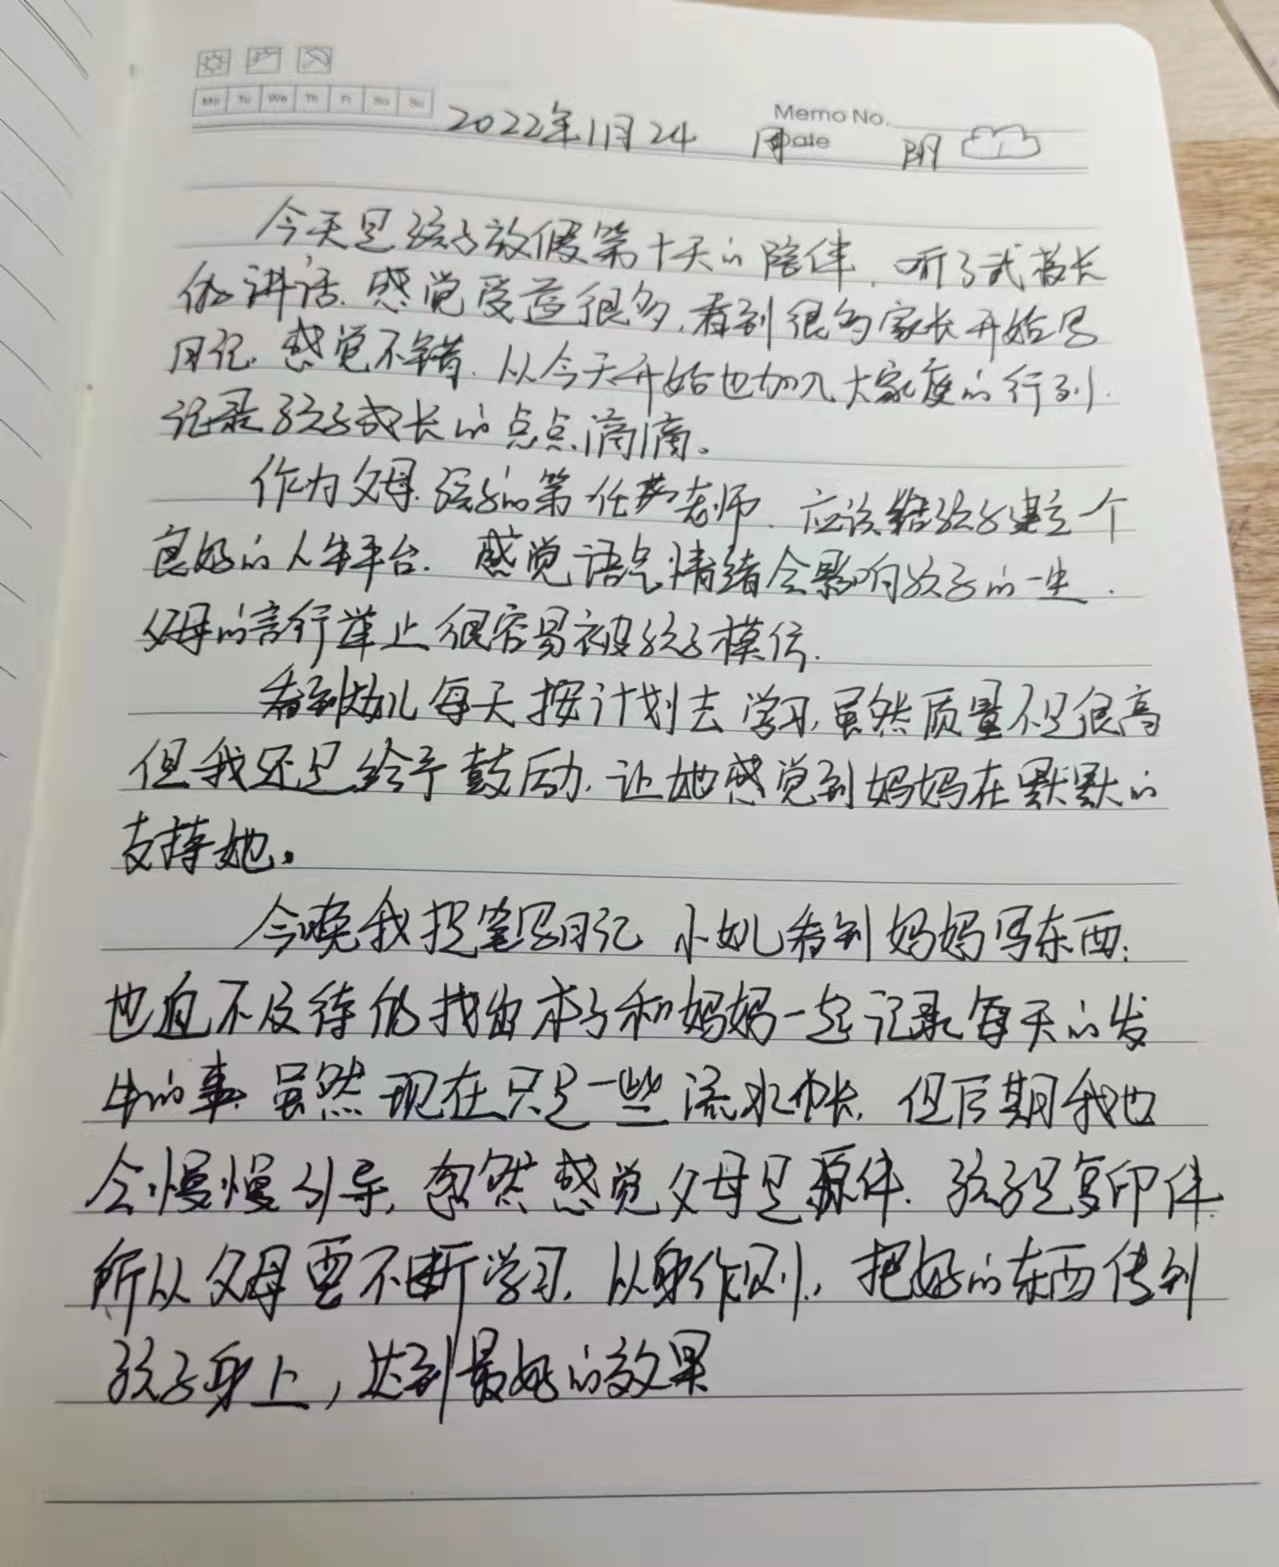 Mo Tu We Th Fr Sa Su
Memo No.
Date
2022年11月24 周 阴
今天是孩子放假第十天的陪伴，听了武校长
的讲话，感觉受益很多，看到很多家长开始写
日记，感觉不错，从今天开始也加入大家庭的行列，
记录孩子成长的点点滴滴。
作为父母，孩子的第一任老师，应该给孩子建立一个
良好的人生平台，感觉语气情绪会影响孩子的一生，
父母的言行举止很容易被孩子模仿，
看到幼儿每天按计划去学习，虽然质量不是很高
但我还是给予鼓励，让她感觉到妈妈在默默的
支持她。
今晚我提笔写日记 小女儿看到妈妈写东西，
也迫不及待的找出本子和妈妈一起记录每天的发
生的事 虽然现在只是一些流水帐，但后期我也
会慢慢引导，忽然感觉父母是原件，孩子是复印件，
所以父母要不断学习，以身作则，把好的东西传到
孩子身上，达到最好的效果